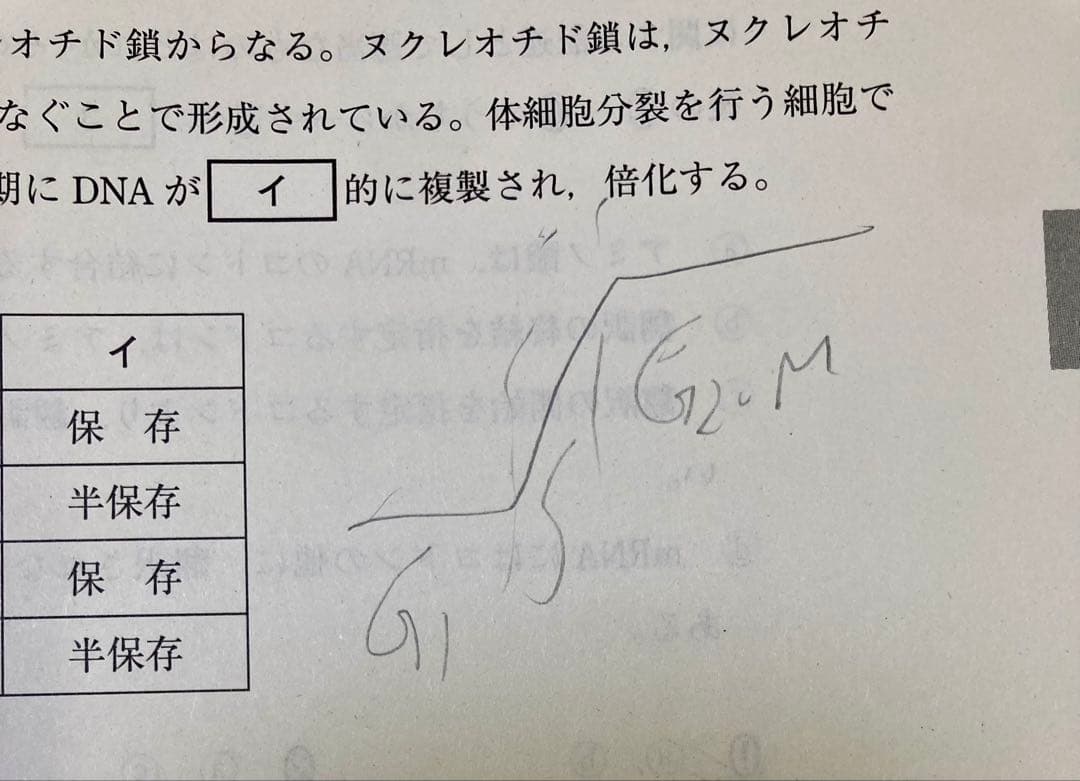 オチド鎖からなる。ヌクレオチド鎖は，ヌクレオチ
なぐことで形成されている。体細胞分裂を行う細胞で
期に DNA が イ 的に複製され，倍化する。
イ
保 存
半保存
保 存
半保存
G1
S
G2 M